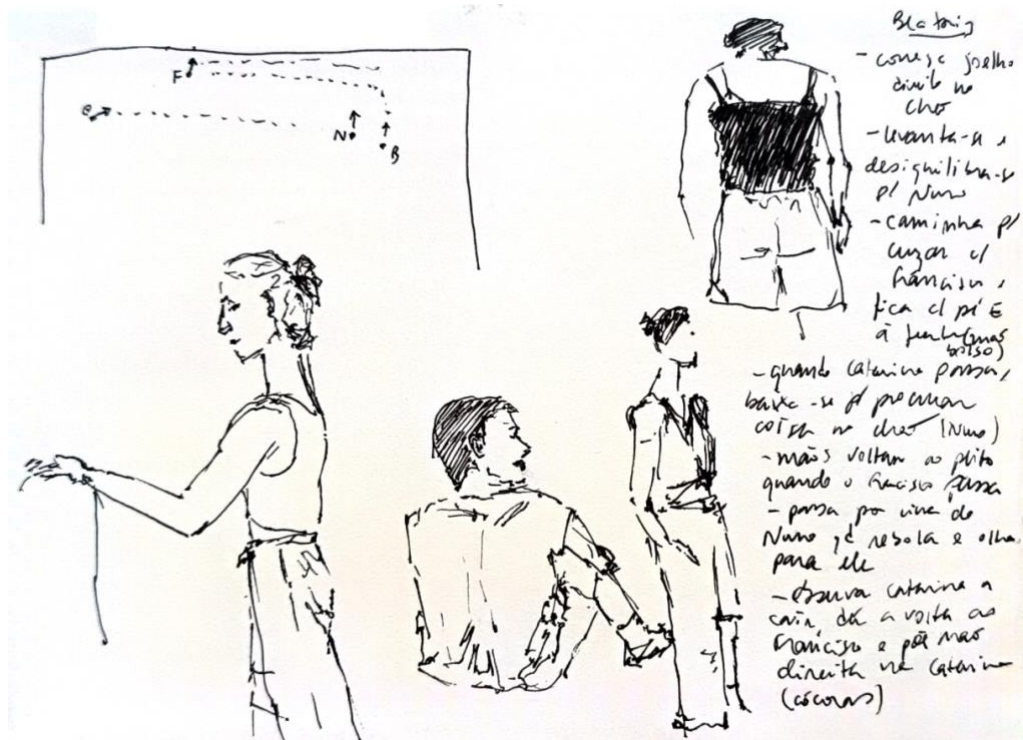 F
C
N
B
Beatriz
- começa joelho
direito no
chão
- levanta-se e
desequilibra-se
p/ Nuno
- caminha p/
cruzar c/
Francisco e
fica c/ pé E
à frente (mãos
bolso)
- quando Catarina passa,
baixa-se p/ procurar
coisa no chão (Nuno)
- mãos voltam ao peito
quando o Francisco passa
- passa por cima do
Nuno, rebola e olha
para ele
- observa Catarina a
cair, dá a volta ao
Francisco e põe mão
direita na Catarina
(cócoras)